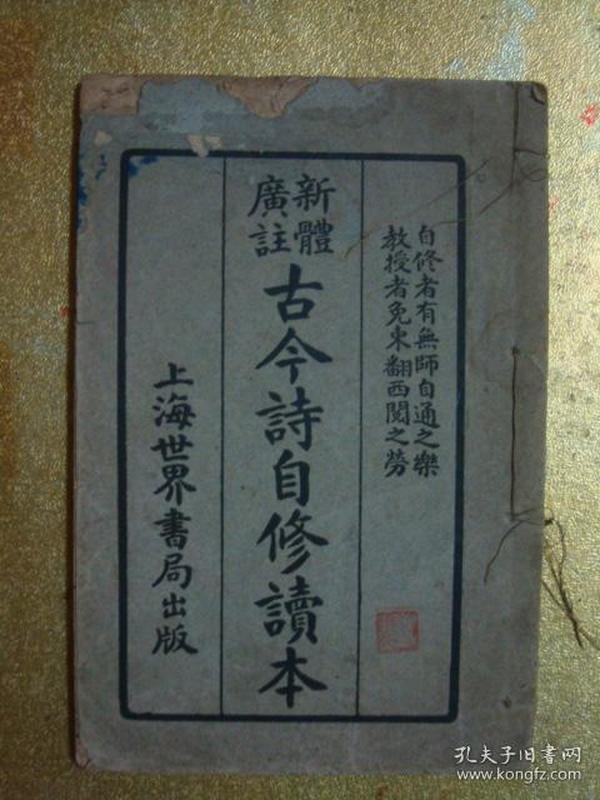 自修者有無師自通之樂
教授者免東翻西閱之勞
新體
廣註
古今詩自修讀本
上海世界書局出版
孔夫子旧书网
www.kongfz.com